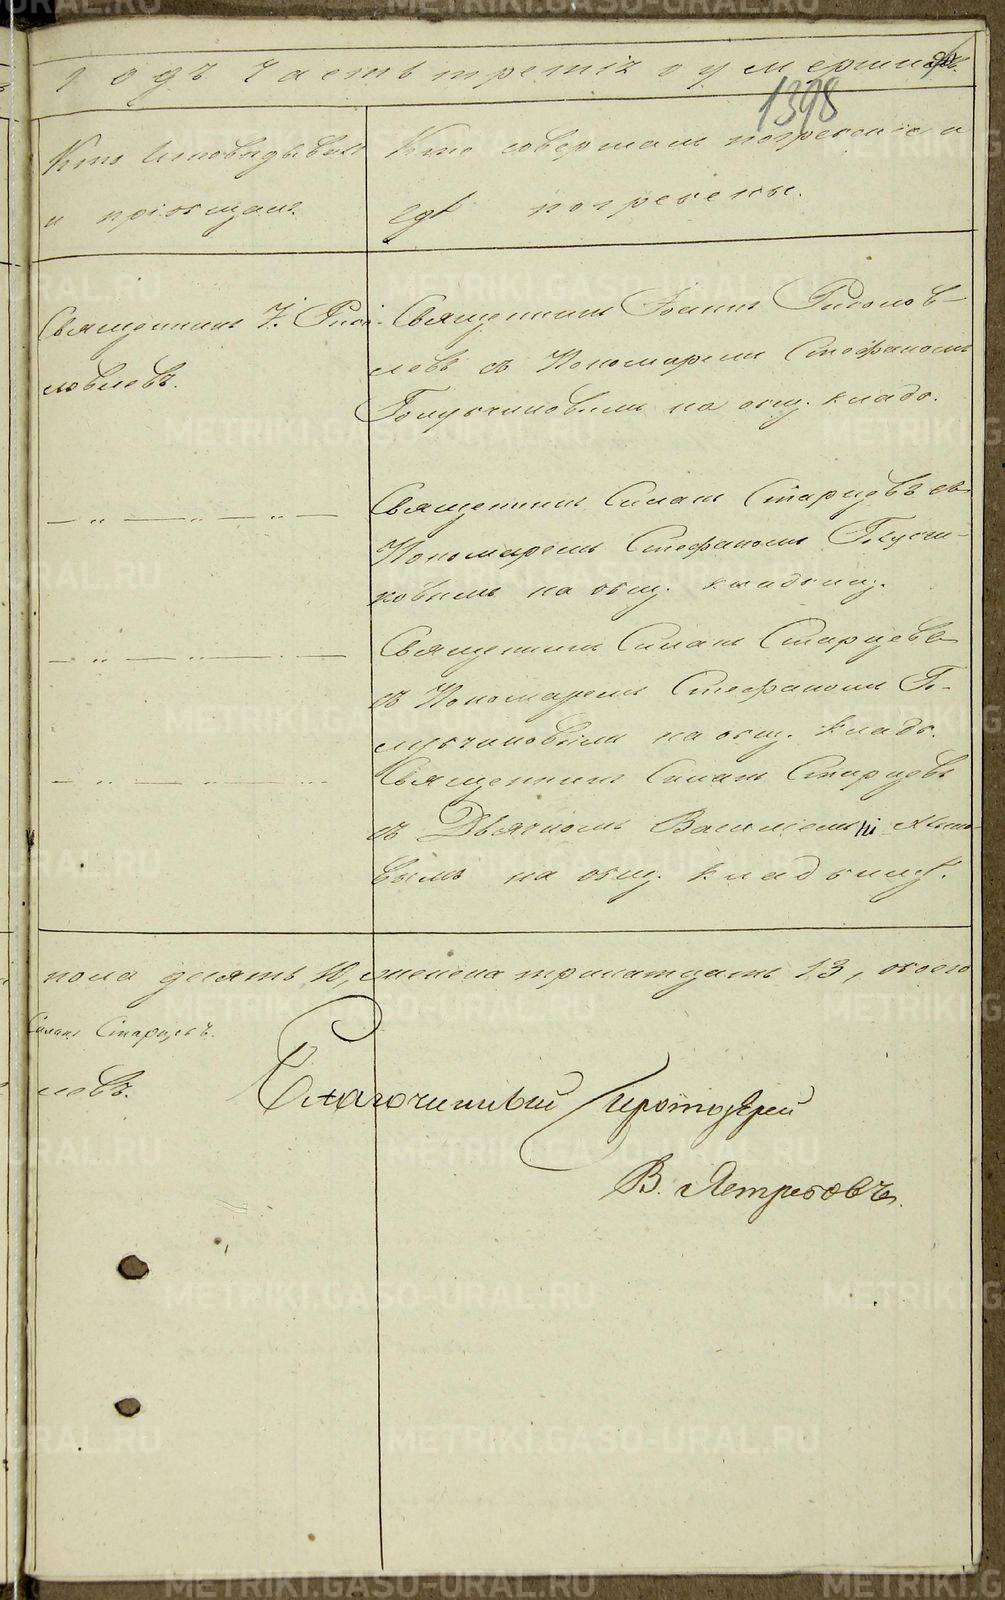 годъ часть третія о умершихъ.
1398
Кто исповѣдывалъ
и пріобщалъ.
Кто совершалъ погребеніе и
гдѣ погребены.
Священникъ І.
ловлевъ.
Священникъ Іоаннъ
левъ съ Пономаремъ Стефаномъ
на общ. кладб.
— „ — „ — „ —
Священникъ Силанъ Старцевъ съ
Пономаремъ Стефаномъ
ковымъ на общ. кладбищ.
— „ — „ — —
Священникъ Силанъ Старцевъ
съ Пономаремъ Стефаномъ Го-
на общ. кладб.
— „ — „ —
Священникъ Силанъ Старцевъ
съ Дьячкомъ Василіемъ
вымъ на общ. кладбищѣ.
пола десять 10, женска тринадцать 13, обоего
Силанъ Старцевъ.
левъ.
Благочинный Протоіерей
В. Ястребовъ.
METRIKI.GASO-URAL.RU